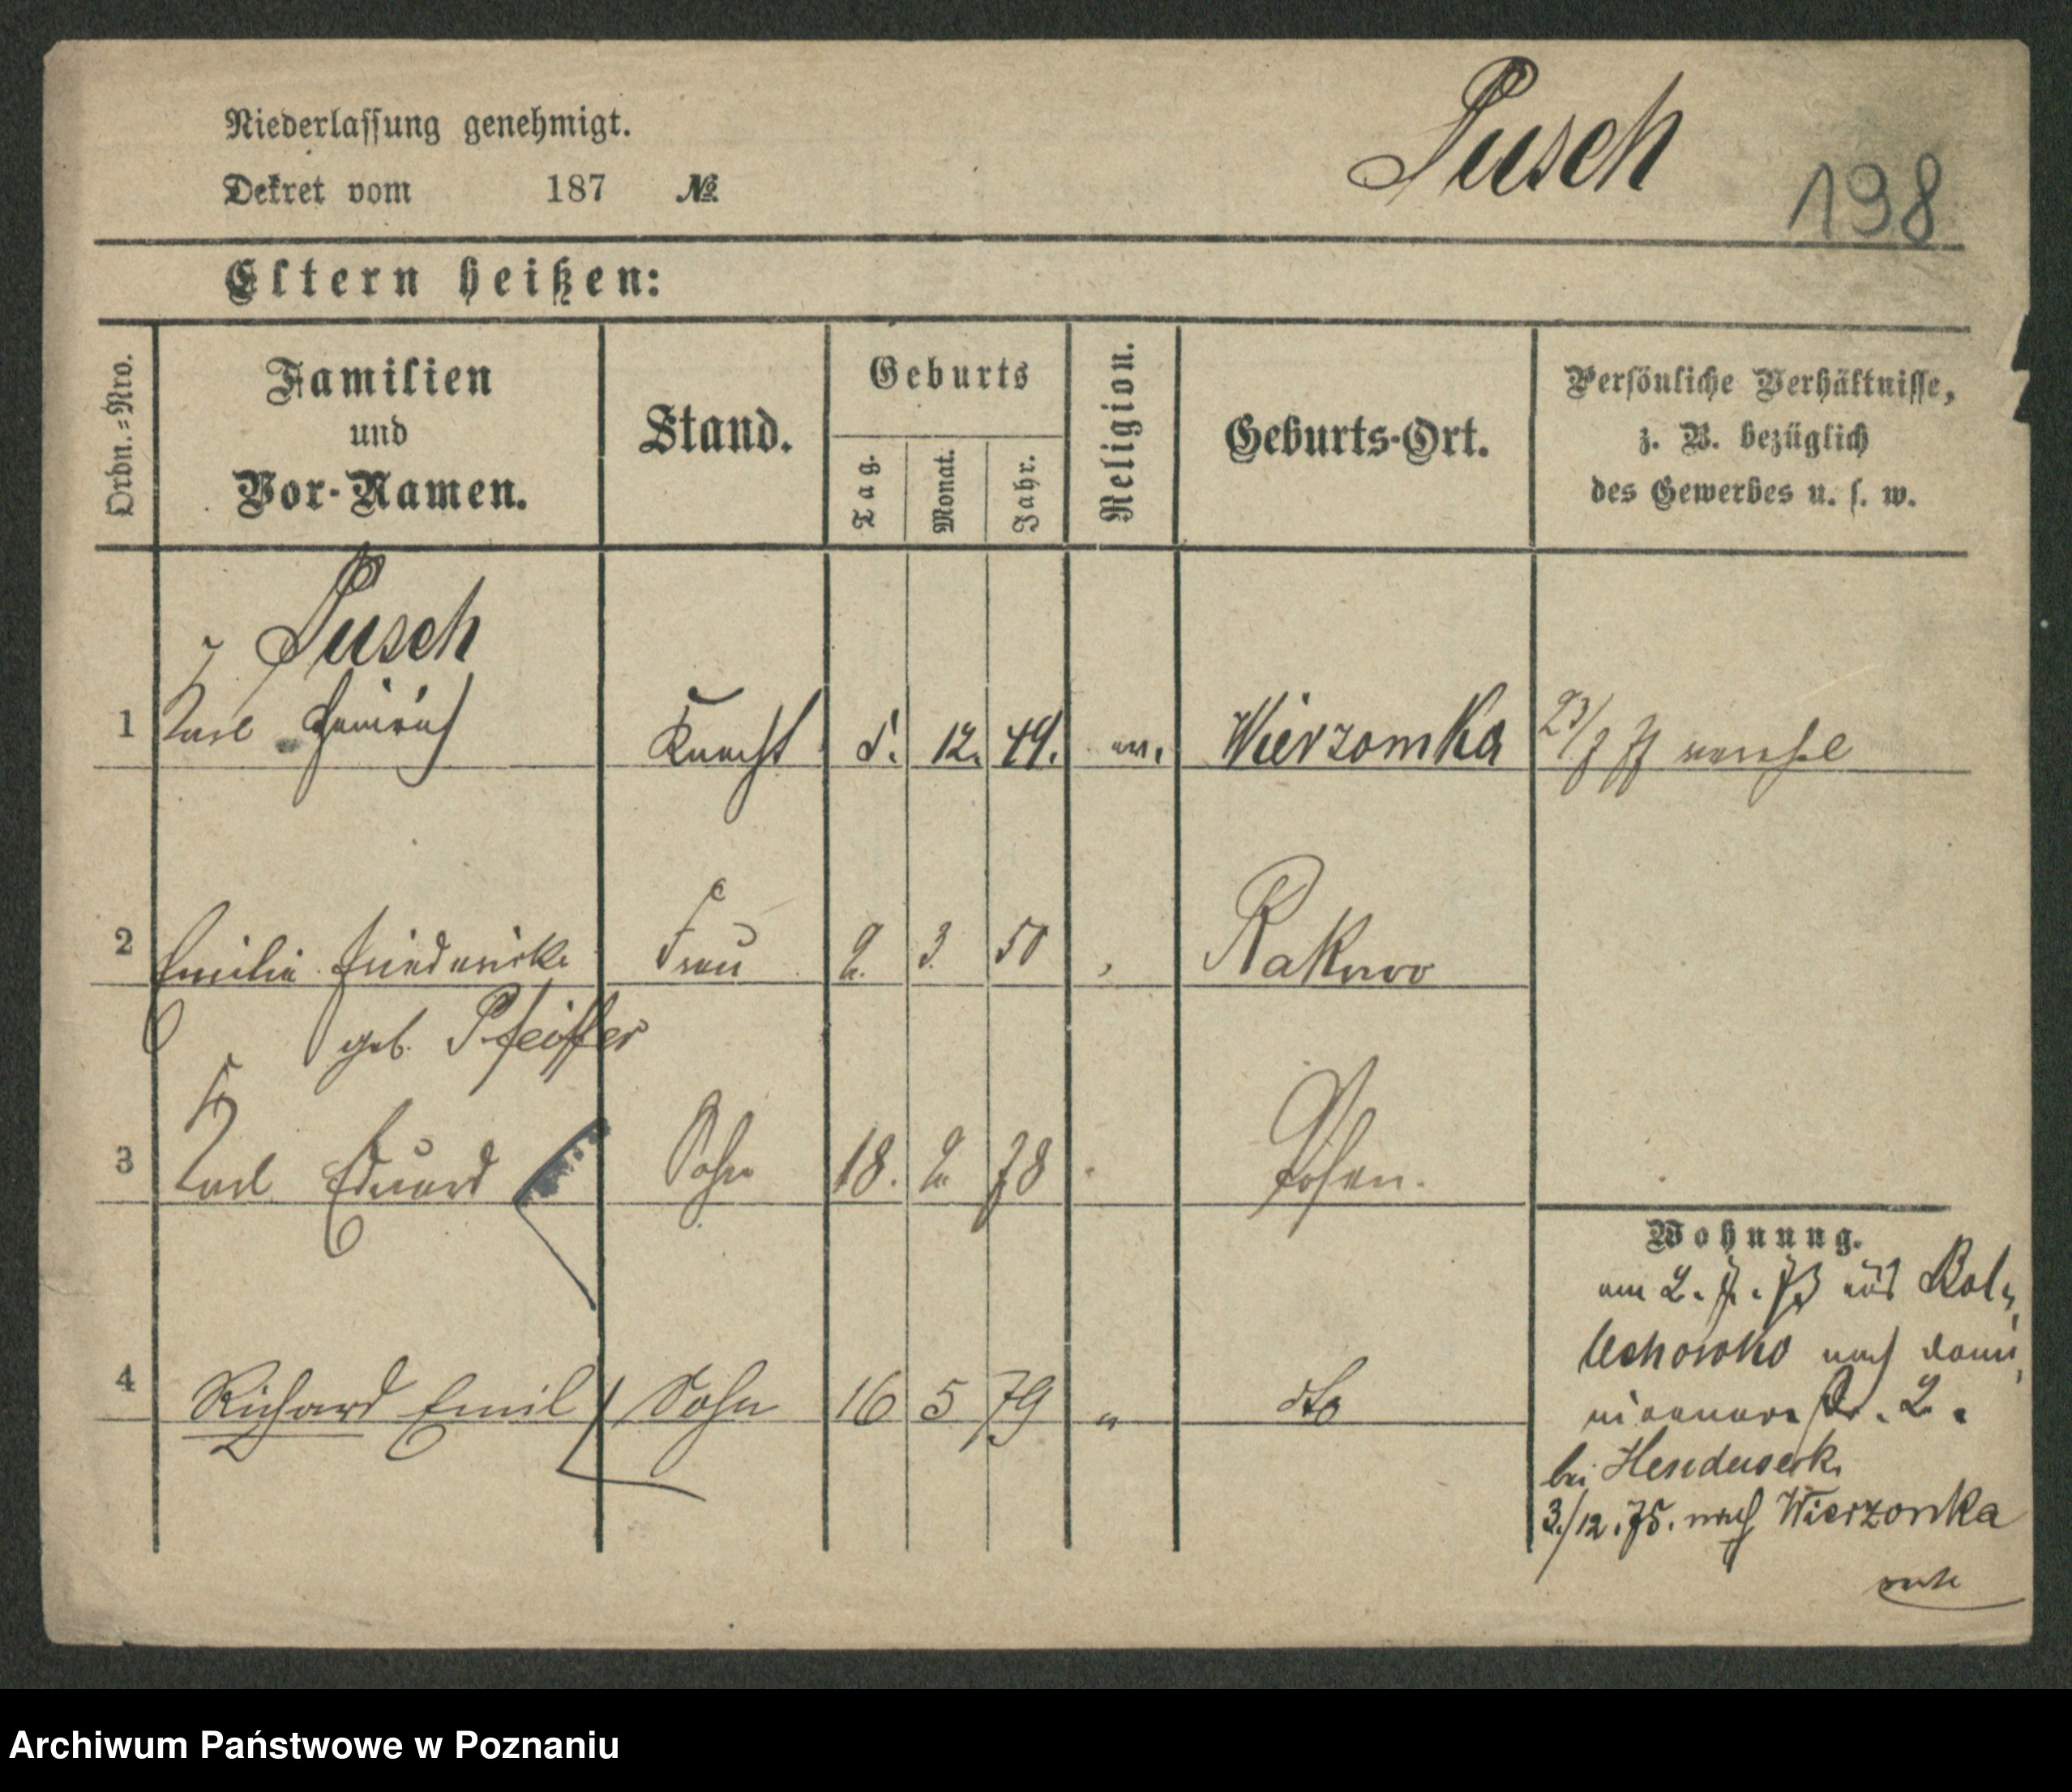 Niederlassung genehmigt.
Dekret vom 187 №
Pusch
198
Eltern heißen:
Ordn.=Nro.
Familien
und
Vor-Namen.
Stand.
Geburts
Tag.
Monat.
Jahr.
Religion.
Geburts-Ort.
Persönliche Verhältnisse,
z. B. bezüglich
des Gewerbes u. s. w.
Pusch
1 Karl Heinrich Knecht 12. 49. ev. Wierzomka 23/
2 Emilie Friedericke Frau 2. 3. 50 Rakowo
geb. Pfeiffer
3 Karl Eduard Sohn 18. 2 78 Posen.
4 Richard Emil Sohn 16 5 79 " dto
Wohnung.
am 2. 7. 73 aus
nach
2.
bei
3./12.75. nach Wierzonka
Archiwum Państwowe w Poznaniu